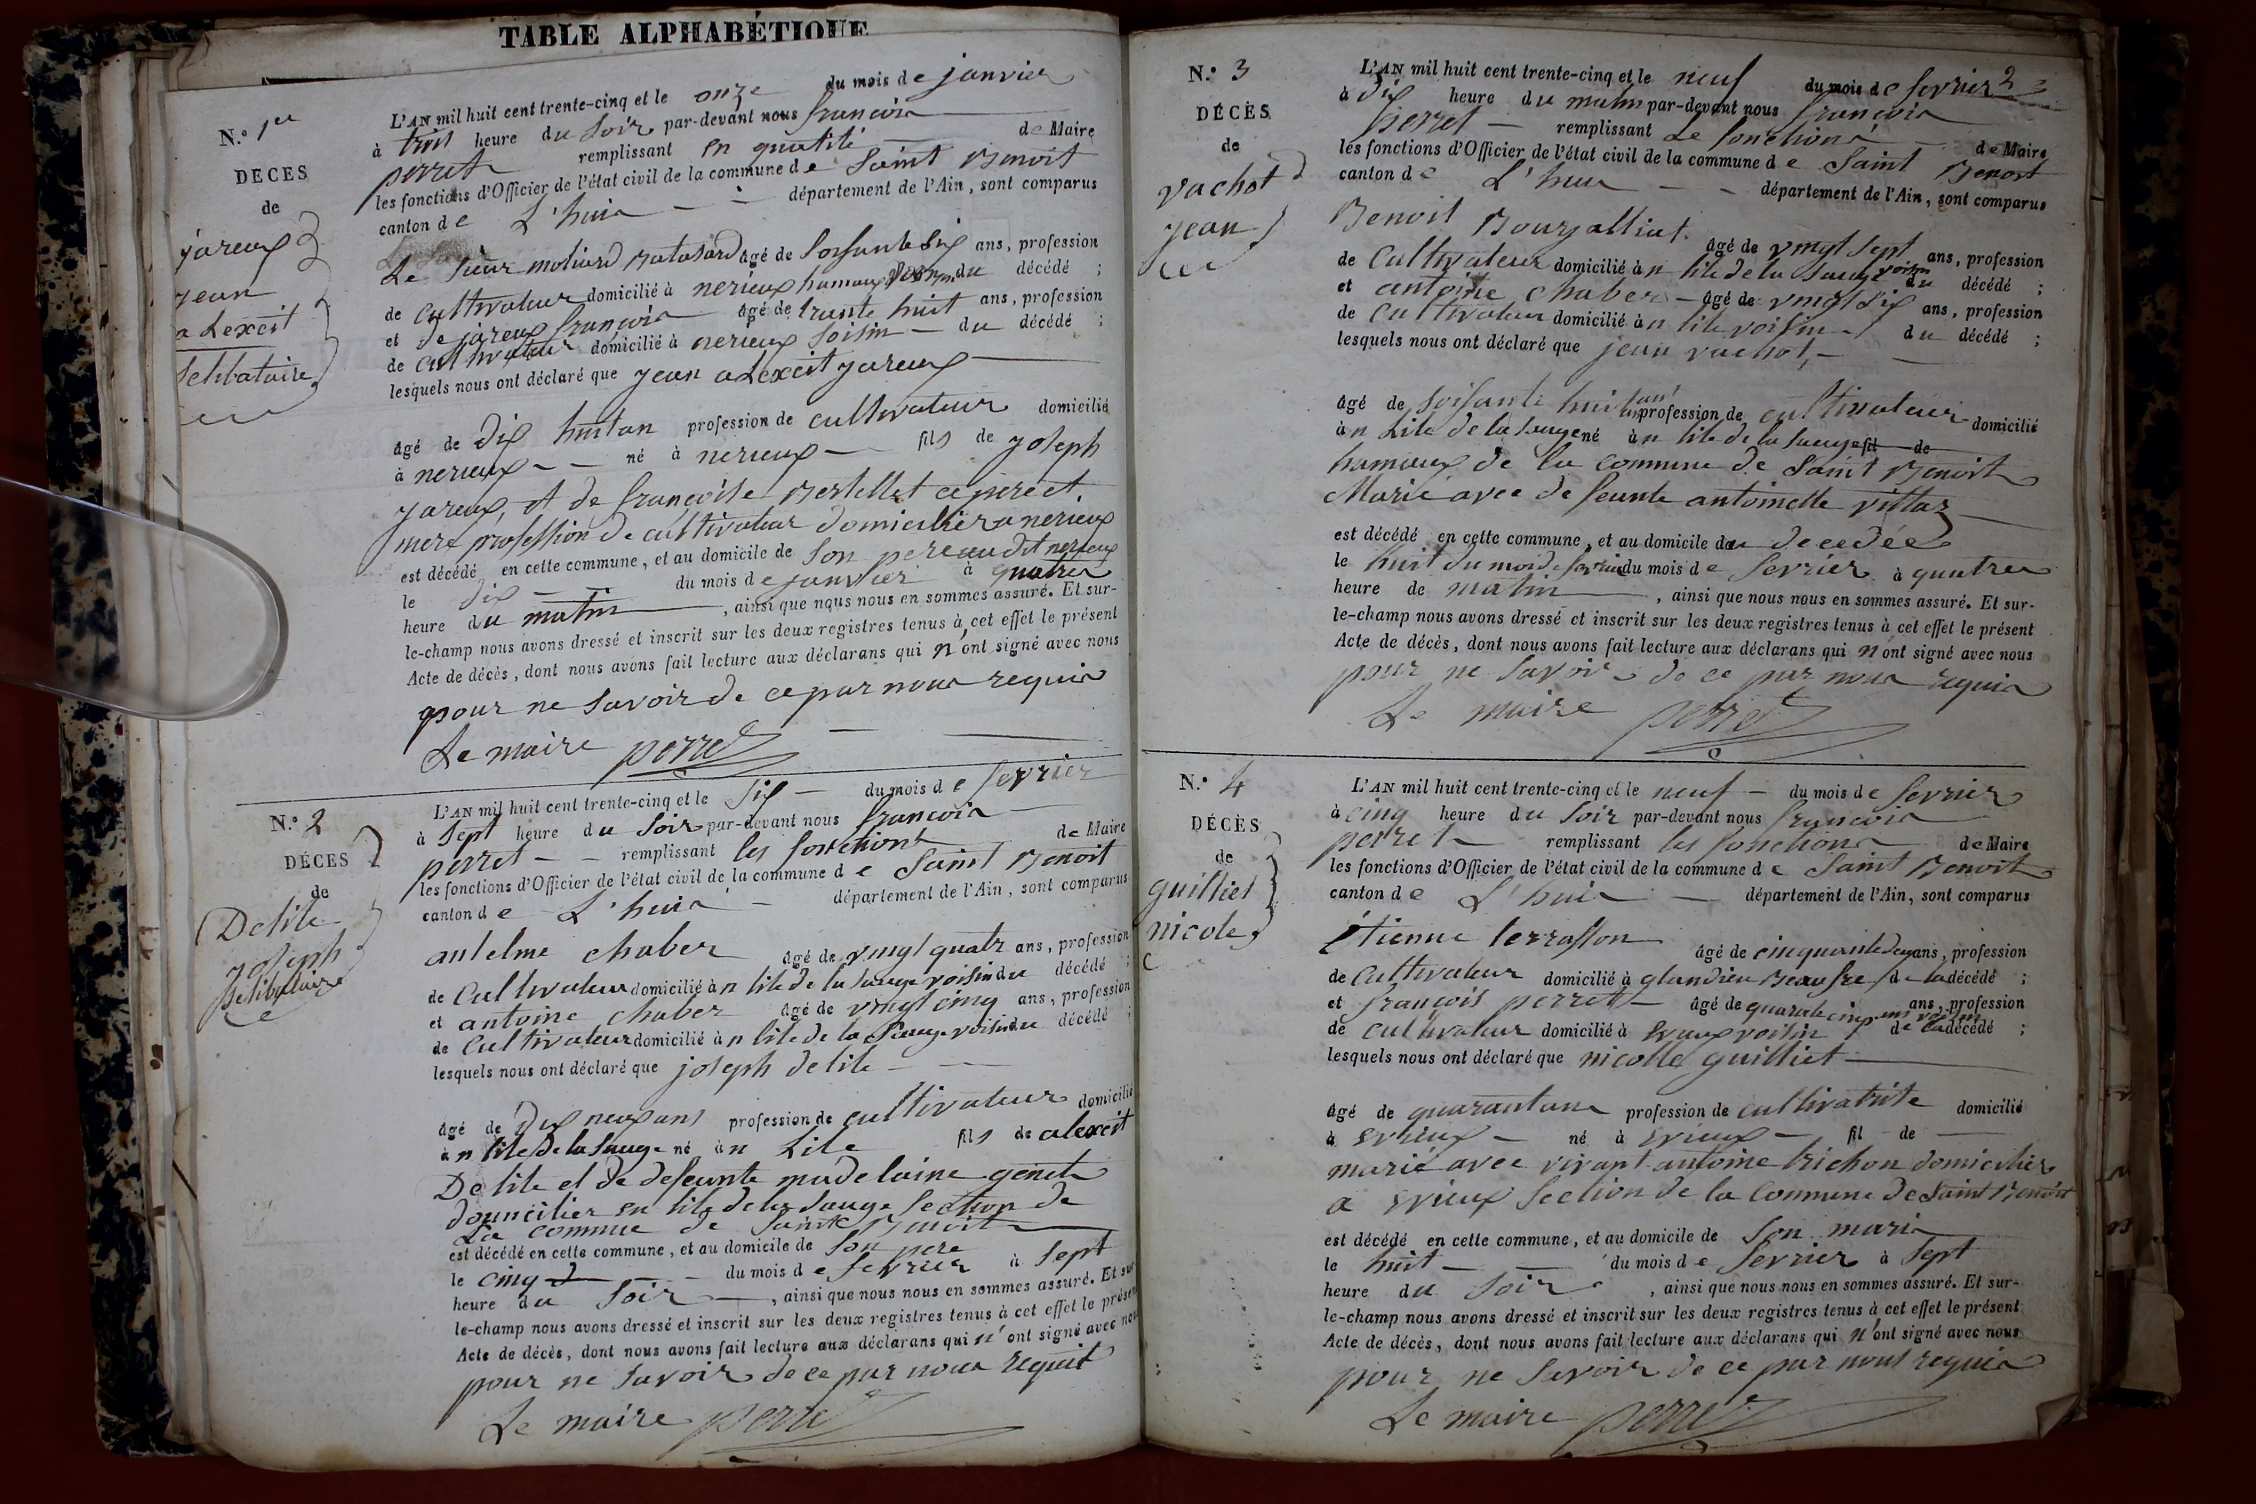 TABLE ALPHABÉTIQUE
N.º 1er
DÉCES
de
jareux
jean
alexcit
Selibataire
L'AN mil huit cent trente-cinq et le onze du mois de janvier
à trois heure du soir par-devant nous francois
perret remplissant en qualité de Maire
les fonctions d'Officier de l'état civil de la commune de Saint Benoit
canton de L'huis département de l'Ain, sont comparus
Le sieur moliard âgé de soisante six ans, profession
de cultivateur domicilié à nerieux hamaux voisin du décédé ;
et de jareux francois âgé de trante huit ans, profession
de cultivateur domicilié à nerieux voisin du décédé ;
lesquels nous ont déclaré que jean alexcit jareux
âgé de dix huitan profession de cultivateur domicilié
à nerieux né à nerieux fils de joseph
jareux, et de francoise Bertellet ce pere et
mere profession de cultivateur domicilier a nerieux
est décédé en cette commune, et au domicile de son pere au dit nerieux
le dix du mois de janvier à quatre
heure du matin, ainsi que nous nous en sommes assuré. Et sur-
le-champ nous avons dressé et inscrit sur les deux registres tenus à cet effet le présent
Acte de décès, dont nous avons fait lecture aux déclarans qui n'ont signé avec nous
pour ne savoir de ce par nous requis
Le maire perret
N.º 2
DÉCES
de
Delile
joseph
Selibataire
L'AN mil huit cent trente-cinq et le six du mois de fevrier
à sept heure du soir par-devant nous francois
perret remplissant les fonctions de Maire
les fonctions d'Officier de l'état civil de la commune de Saint Benoit
canton de L'huis département de l'Ain, sont comparus
antelme chaber âgé de vingt quatr ans, profession
de cultivateur domicilié à n lile de la sauge voisin du décédé ;
et antoine chaber âgé de vingt cinq ans, profession
de cultivateur domicilié à n lile de la sauge voisin du décédé ;
lesquels nous ont déclaré que joseph delile
âgé de dix neuf ans profession de cultivateur domicilié
à n lile de la sauge né à n Lile fils de alexcit
Delile et de defeunte madelaine genet
domicilier en lile de la sauge section de
La commue de Saint Benoit
est décédé en cette commune, et au domicile de son pere
le cinq du mois de fevrier à sept
heure du soir, ainsi que nous nous en sommes assuré. Et sur
le-champ nous avons dressé et inscrit sur les deux registres tenus à cet effet le présen
Acte de décès, dont nous avons fait lecture aux déclarans qui n'ont signé avec nous
pour ne savoir de ce par nous requit
Le maire perret
2
N.º 3
DÉCÈS
de
vachot
jean
L'AN mil huit cent trente-cinq et le neuf du mois de fevrier
à dix heure du matin par-devant nous francois
perret remplissant Le fonctioné de Maire
les fonctions d'Officier de l'état civil de la commune de Saint Benoit
canton de L'huis département de l'Ain, sont comparus
Benoit Bourjalliat âgé de vingt sept ans, profession
de cultivateur domicilié à n lile de la sauge voisin du décédé ;
et antoine chaber âgé de vingt six ans, profession
de cultivateur domicilié à n lile voisin du décédé ;
lesquels nous ont déclaré que jean vachot
âgé de soisante huit ans profession de cultivateur domicilié
à n Lile de la sauge né à n lile de la sauge fil de
hamaux de la commune de Saint Benoit
Marié avec defeunte antoinette villaz
est décédé en cette commune, et au domicile du decedée
le huit du mois de fevrier du mois de fevrier à quatre
heure de matin, ainsi que nous nous en sommes assuré. Et sur-
le-champ nous avons dressé et inscrit sur les deux registres tenus à cet effet le présent
Acte de décès, dont nous avons fait lecture aux déclarans qui n'ont signé avec nous
pour ne savoir de ce par nous requis
Le maire perret
N.º 4
DÉCÈS
de
guilliet
nicole
L'AN mil huit cent trente-cinq et le neuf du mois de fevrier
à cinq heure du soir par-devant nous francois
perret remplissant les fonctions de Maire
les fonctions d'Officier de l'état civil de la commune de Saint Benoit
canton de L'huis département de l'Ain, sont comparus
étienne terrasson âgé de cinquante deux ans, profession
de cultivateur domicilié à glandieu Beaufre de la décédé ;
et françois perret âgé de quarante cinq ans voisin ans, profession
de cultivateur domicilié à evieux voisin de la décédé ;
lesquels nous ont déclaré que nicolle guilliet
âgé de quarantans profession de cultivatrite domicilié
à evieux né à evieux fil de
marié avec vivant antoine trichon domicilier
a evieux section de la commune de Saint Benoit
est décédé en cette commune, et au domicile de son mari
le huit du mois de fevrier à sept
heure du soir, ainsi que nous nous en sommes assuré. Et sur-
le-champ nous avons dressé et inscrit sur les deux registres tenus à cet effet le présent
Acte de décès, dont nous avons fait lecture aux déclarans qui n'ont signé avec nous
pour ne savoir de ce par nous requis
Le maire perret